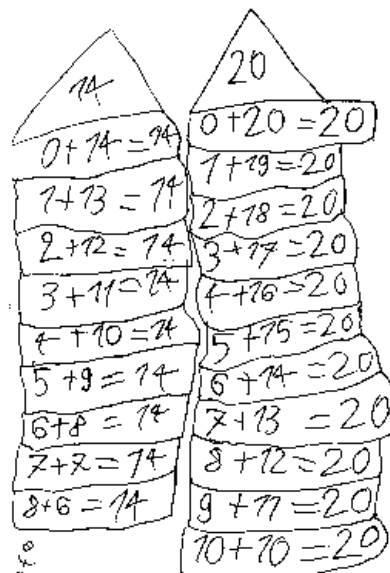 14
0+14=14
1+13=14
2+12=14
3+11=14
4+10=14
5+9=14
6+8=14
7+7=14
8+6=14
20
0+20=20
1+19=20
2+18=20
3+17=20
4+16=20
5+15=20
6+14=20
7+13=20
8+12=20
9+11=20
10+10=20